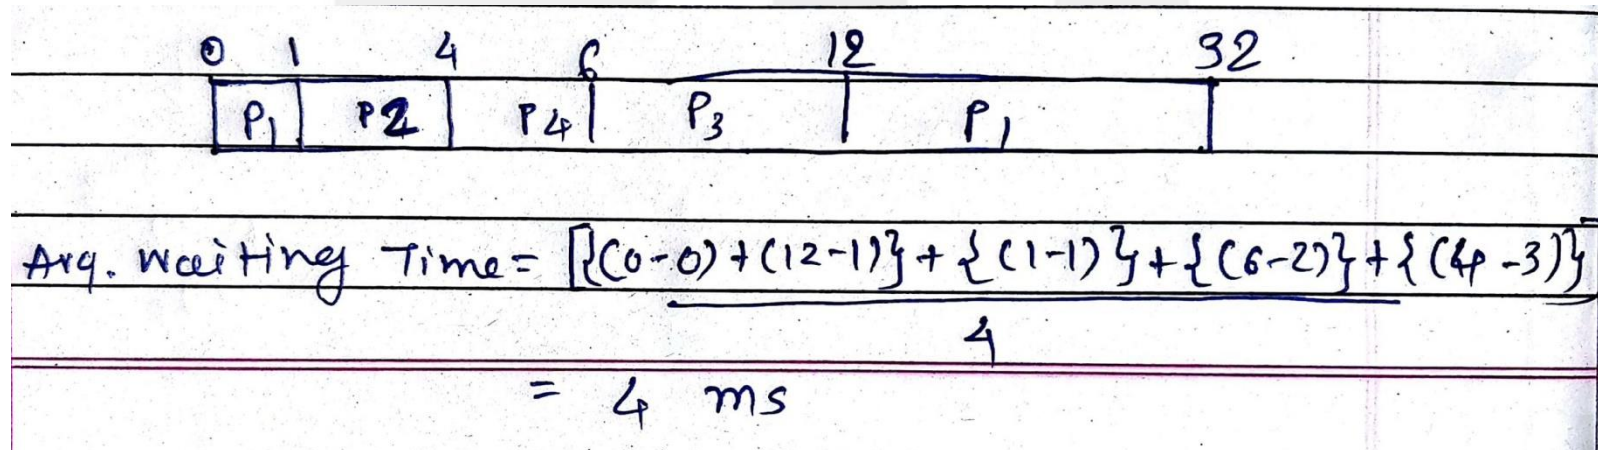 0 1 4 6 12 32
P1 P2 P4 P3 P1
Avg. Waiting Time = [{(0-0)+(12-1)}+{(1-1)}+{(6-2)}+{(4-3)}]
4
= 4 ms